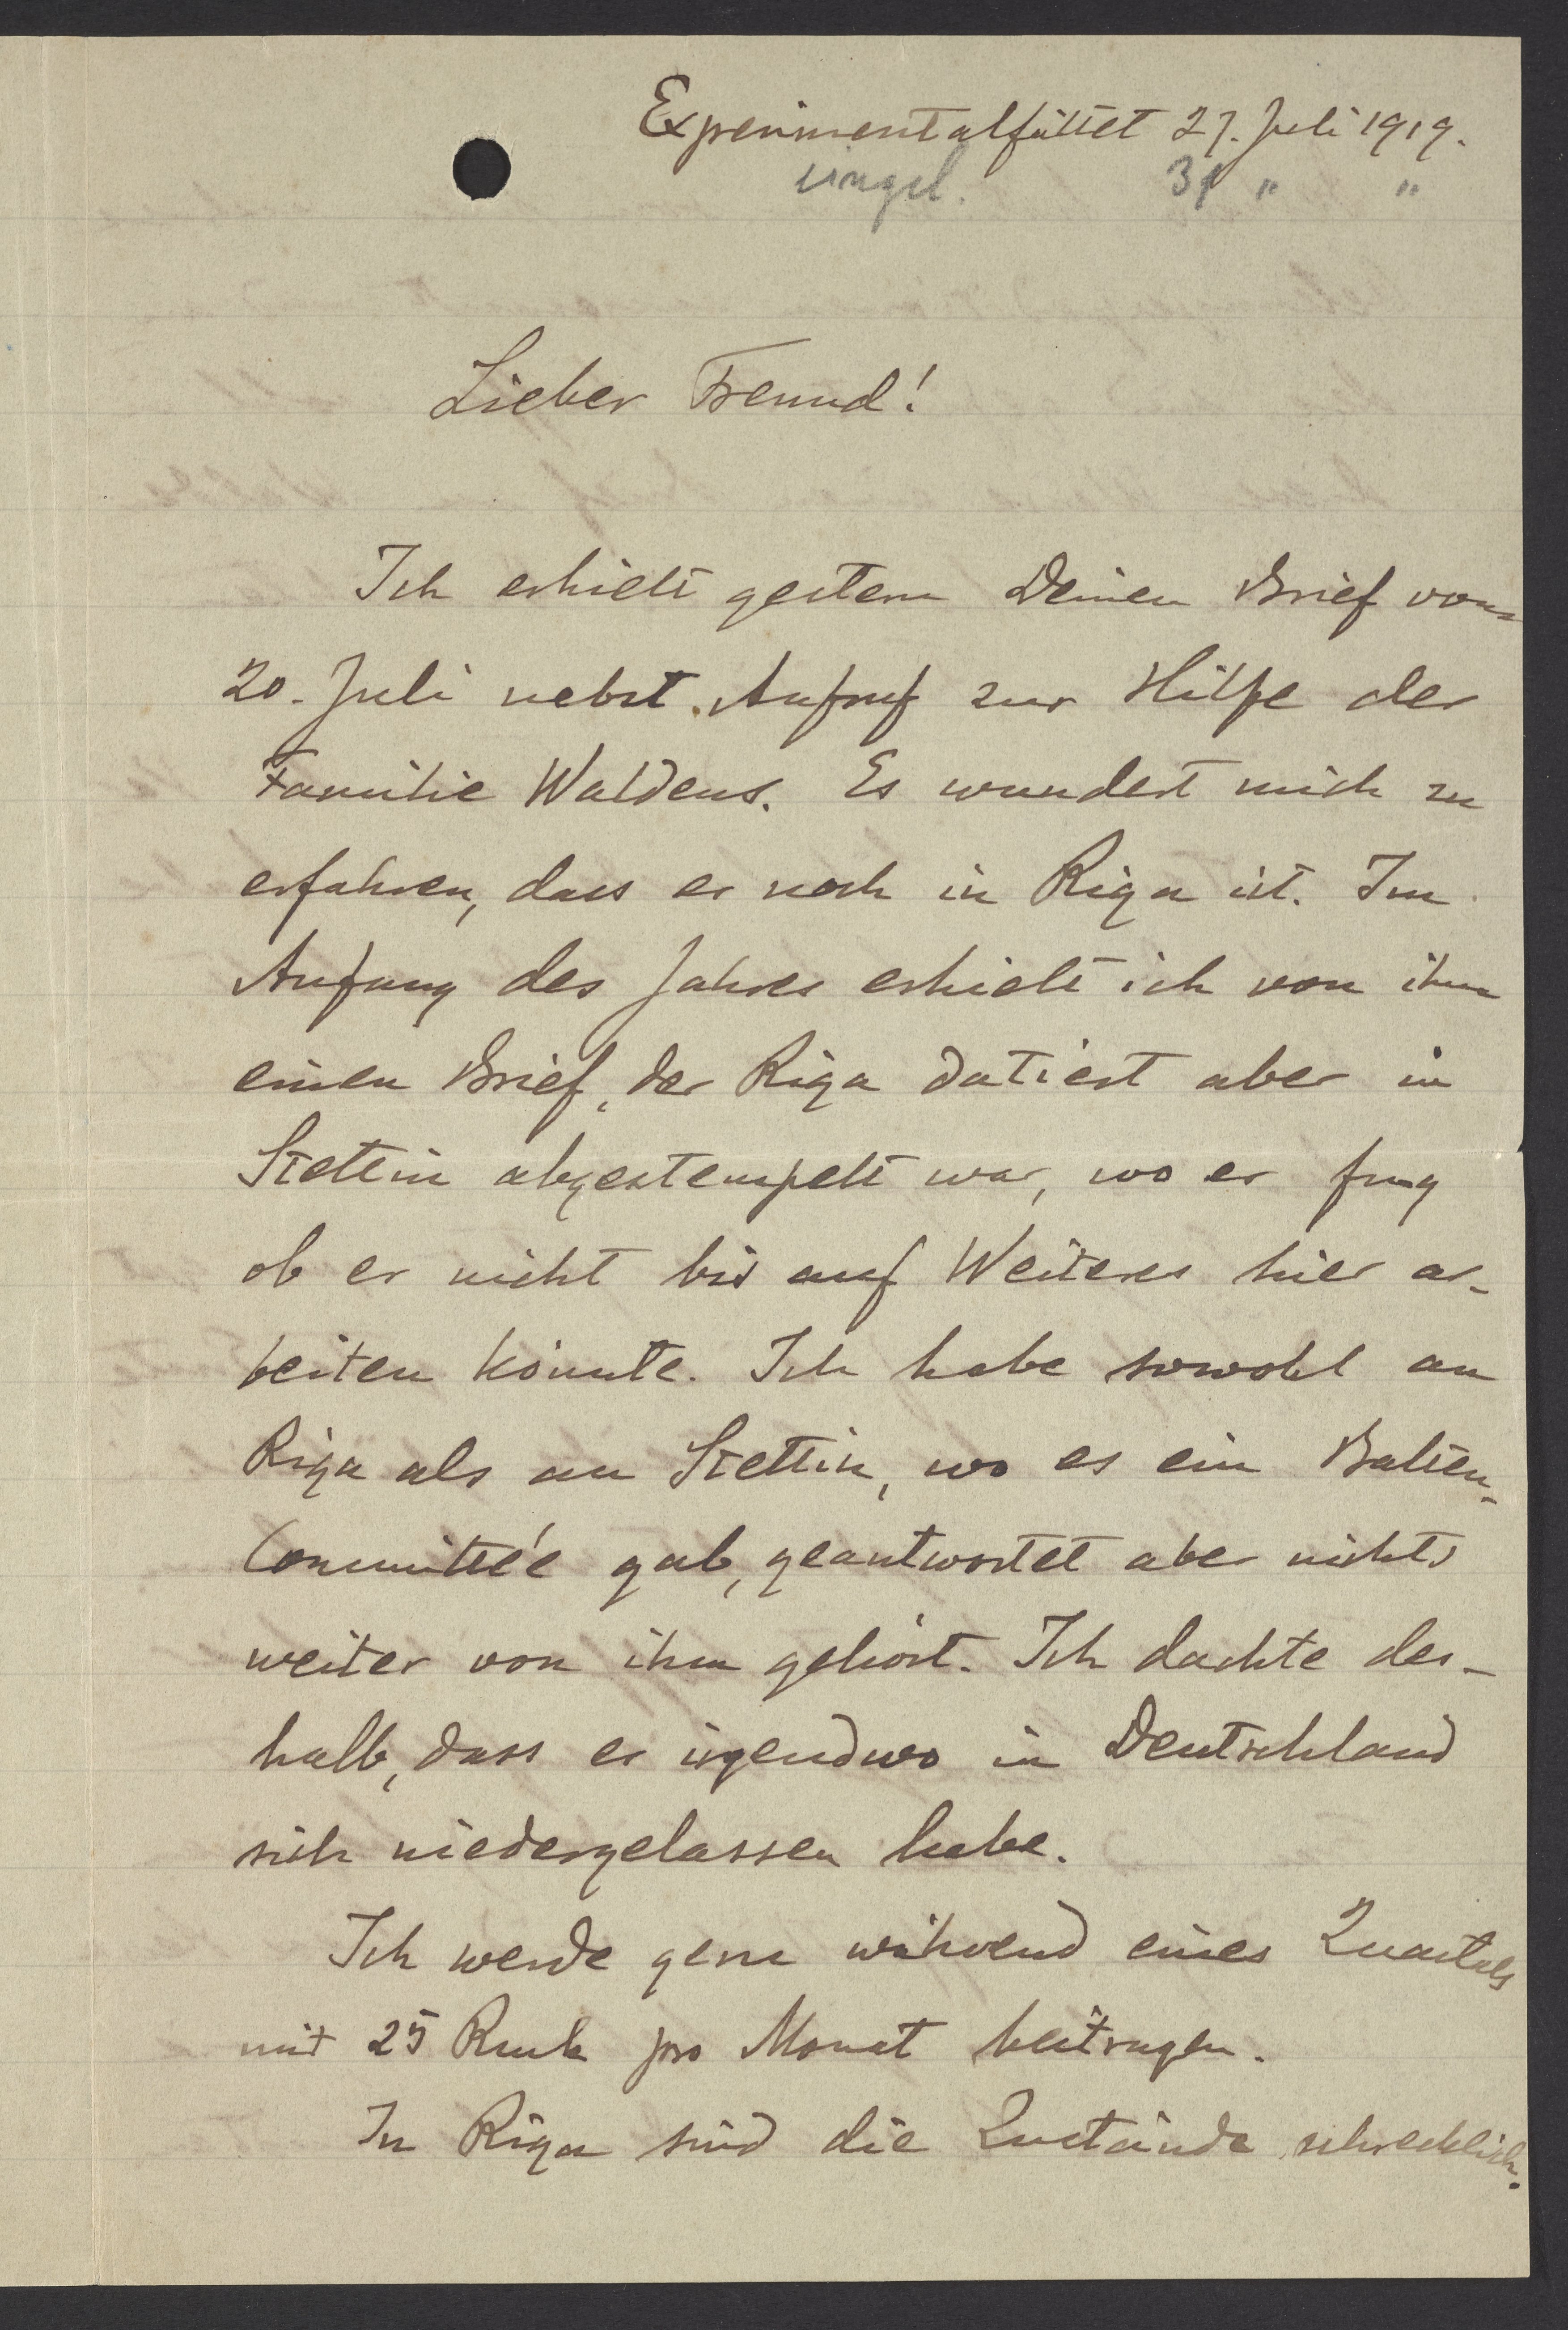 Experimentalfältet 27. Juli 1919.
eingel. 31 " "
Lieber Freund!
Ich erhielt gestern Deinen Brief vom
20. Juli nebst Aufruf zur Hilfe der
Familie Waldens. Es wundert mich zu
erfahren, dass er noch in Riga ist. Im
Anfang des Jahres erhielt ich von ihm
einen Brief, der Riga datiert aber in
Stettin abgestempelt war, wo er frug
ob er nicht bis auf Weiteres hier ar-
beiten könnte. Ich habe sowohl an
Riga als an Stettin, wo es ein Balten-
Committée gab, geantwortet aber nichts
weiter von ihm gehört. Ich dachte des-
halb, dass er irgendwo in Deutschland
sich niedergelassen habe.
Ich werde gern während eines Quartals
mit 25 Rmk pro Monat beitragen.
In Riga sind die Zustände schrecklich.